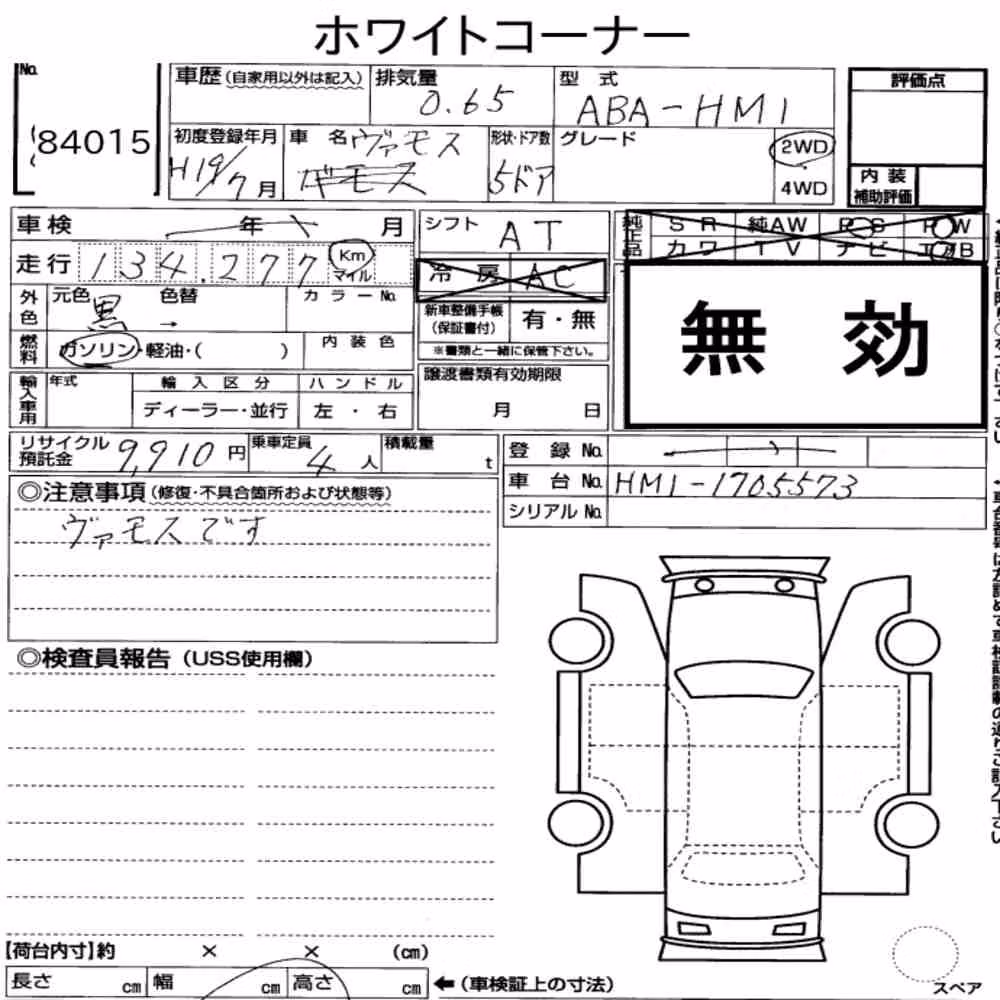 ホワイトコーナー
No. 車歴(自家用以外は記入) 排気量 0.65 型式 ABA-HM1 評価点
84015
初度登録年月 H19/7月 車名 ヴァモス ギモス 形状・ドア数 5ドア グレード 2WD
4WD
内装
補助評価
車検 年 月 シフト AT 純正品 SR 純AW PS PW
カワ TV ナビ エアB
走行 134,277 Km
マイル
冷房 AC
無効
外色 元色 黒 色替 → カラーNo. 新車整備手帳
(保証書付) 有・無
燃料 ガソリン・軽油・( ) 内装色 ※書類と一緒に保管下さい。
輸入車用 年式 輸入区分 ハンドル 譲渡書類有効期限
ディーラー・並行 左・右 月 日
リサイクル
預託金 9,910円 乗車定員 4人 積載量 t
登録No.
車台No. HM1-1705573
シリアルNo.
◎注意事項(修復・不具合箇所および状態等)
ヴァモスです
◎検査員報告(USS使用欄)
【荷台内寸】約 × × (cm)
長さ cm 幅 cm 高さ cm ←(車検証上の寸法)
スペア